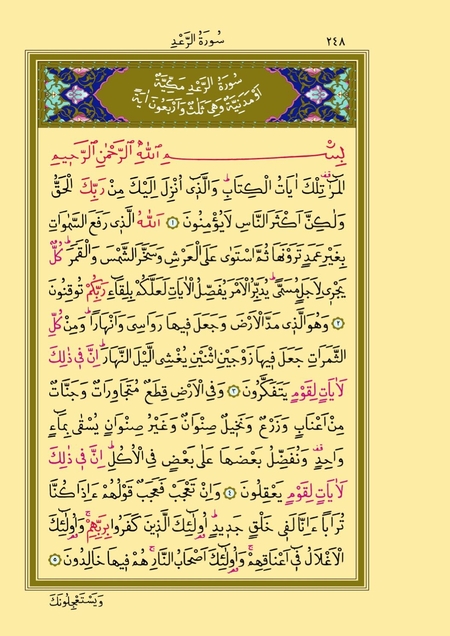 سُورَةُ الرَّعْدِ ٢٤٨
سُورَةُ الرَّعْدِ مَكِّيَّةٌ
اَوْ مَدَنِيَّةٌ وَهِيَ ثَلٰثٌ وَاَرْبَعُونَ اٰيَةً
بِسْمِ اللّٰهِ الرَّحْمٰنِ الرَّحِيمِ
الٓمٓرٰ تِلْكَ اٰيَاتُ الْكِتَابِۜ وَالَّذ۪ٓي اُنْزِلَ اِلَيْكَ مِنْ رَبِّكَ الْحَقُّ
وَلٰكِنَّ اَكْثَرَ النَّاسِ لَا يُؤْمِنُونَ ﴿١﴾ اَللّٰهُ الَّذ۪ي رَفَعَ السَّمٰوَاتِ
بِغَيْرِ عَمَدٍ تَرَوْنَهَا ثُمَّ اسْتَوٰى عَلَى الْعَرْشِ وَسَخَّرَ الشَّمْسَ وَالْقَمَرَۜ كُلٌّ
يَجْر۪ي لِاَجَلٍ مُسَمًّىۜ يُدَبِّرُ الْاَمْرَ يُفَصِّلُ الْاٰيَاتِ لَعَلَّكُمْ بِلِقَٓاءِ رَبِّكُمْ تُوقِنُونَ
﴿٢﴾ وَهُوَ الَّذ۪ي مَدَّ الْاَرْضَ وَجَعَلَ ف۪يهَا رَوَاسِيَ وَاَنْهَارًاۜ وَمِنْ كُلِّ
الثَّمَرَاتِ جَعَلَ ف۪يهَا زَوْجَيْنِ اثْنَيْنِ يُغْشِي الَّيْلَ النَّهَارَۜ اِنَّ ف۪ي ذٰلِكَ
لَاٰيَاتٍ لِقَوْمٍ يَتَفَكَّرُونَ ﴿٣﴾ وَفِي الْاَرْضِ قِطَعٌ مُتَجَاوِرَاتٌ وَجَنَّاتٌ
مِنْ اَعْنَابٍ وَزَرْعٌ وَنَخ۪يلٌ صِنْوَانٌ وَغَيْرُ صِنْوَانٍ يُسْقٰى بِمَٓاءٍ
وَاحِدٍ وَنُفَضِّلُ بَعْضَهَا عَلٰى بَعْضٍ فِي الْاُكُلِۜ اِنَّ ف۪ي ذٰلِكَ
لَاٰيَاتٍ لِقَوْمٍ يَعْقِلُونَ ﴿٤﴾ وَاِنْ تَعْجَبْ فَعَجَبٌ قَوْلُهُمْ ءَاِذَا كُنَّا
تُرَابًا ءَاِنَّا لَف۪ي خَلْقٍ جَد۪يدٍۜ اُو۬لٰٓئِكَ الَّذ۪ينَ كَفَرُوا بِرَبِّهِمْۚ وَاُو۬لٰٓئِكَ
الْاَغْلَالُ ف۪ٓي اَعْنَاقِهِمْۚ وَاُو۬لٰٓئِكَ اَصْحَابُ النَّارِۚ هُمْ ف۪يهَا خَالِدُونَ ﴿٥﴾
وَيَسْتَعْجِلُونَكَ